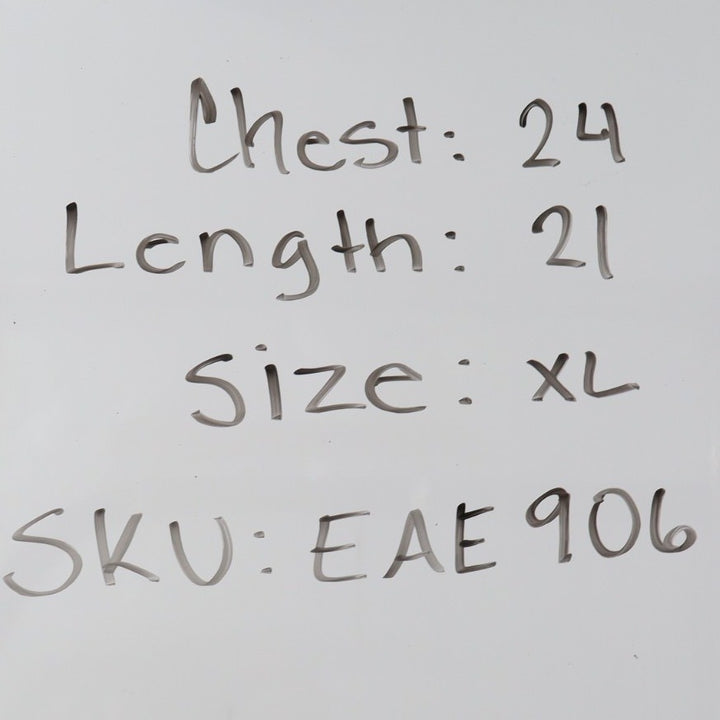 Chest: 24
Length: 21
Size: XL
SKU: EAE906